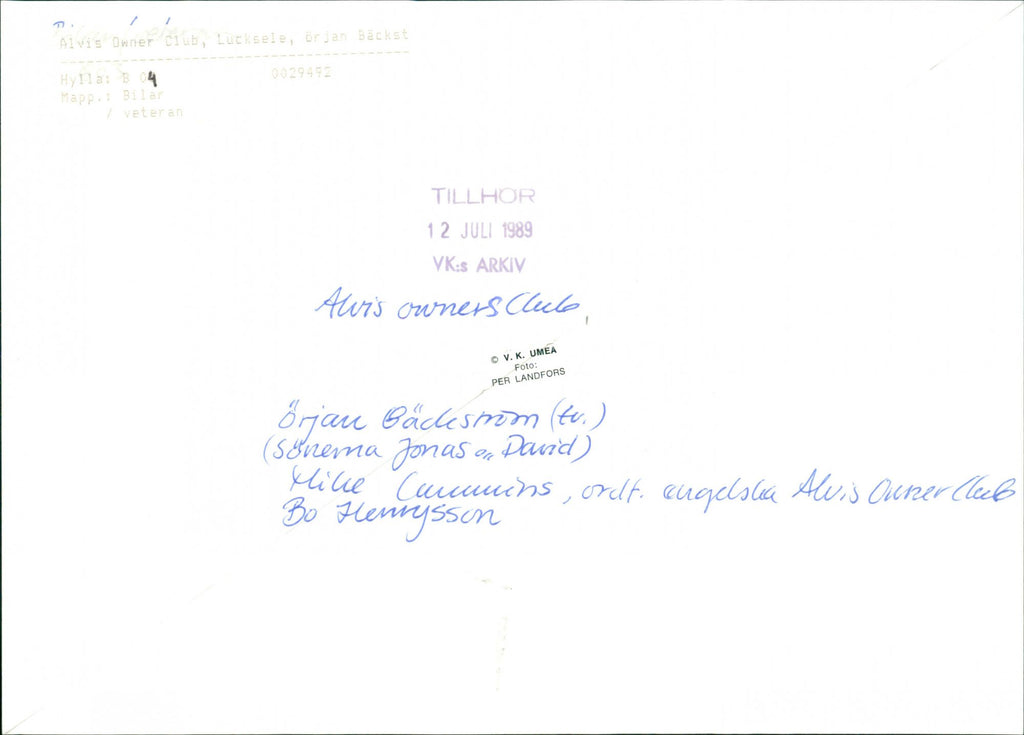 Alvis Owner Club, Lucksele, örjan Bäckst
Hylla: B 04 0029492
Mapp.: Bilar
/ veteran
TILLHÖR
12 JULI 1989
VK:s ARKIV
Alvis owners Club
© V. K. UMEÅ
Foto:
PER LANDFORS
Örjan Bäckström (tv.)
(Sönerna Jonas o David)
Mike Cummins, ordf. engelska Alvis Owner Club
Bo Henrysson